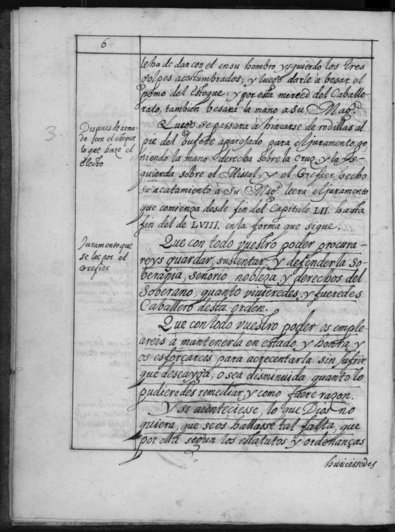 6
le ha de dar con el en su hombro yzquierdo los tres
golpes acostumbrados, y luego darle a besar el
pomo del estoque: y por esta merced del Caballe-
rato, tambien besará la mano a su Mag.d
Luego se passará a hincarse de rodillas al
pie del bufete aparejado para el juramento, po-
niendo la mano derecha sobre la Cruz, y la yz-
quierda sobre el Missal, y el Grefier, hecho
su acatamiento a Su Mag.d leerá el juramento
que comiença desde fin del Capitulo LII. hasta
fin del de LVIII. en la forma que sigue.
Despues de arma-
do con el estoque
lo que haze el
Electo
3
Juramento que
se lee por el
Grefier
Que con todo vuestro poder procura-
reys guardar, sustentar, y defender la So-
berania, señorio nobleza, y derechos del
Soberano, quanto viuieredes, y fueredes
Caballero desta orden.
Que con todo vuestro poder os emple-
areis à mantenerla en estado, y honra, y
os esforçareis para acrecentarla sin sufrir
que descayga, o sea disminuida quanto lo
pudieredes remediar, y como fuere razon.
Y si aconteciesse, lo que Dios no
quiera, que se os hallasse tal falta, que
por ella segun los estatutos y ordenanças
huuiessedes